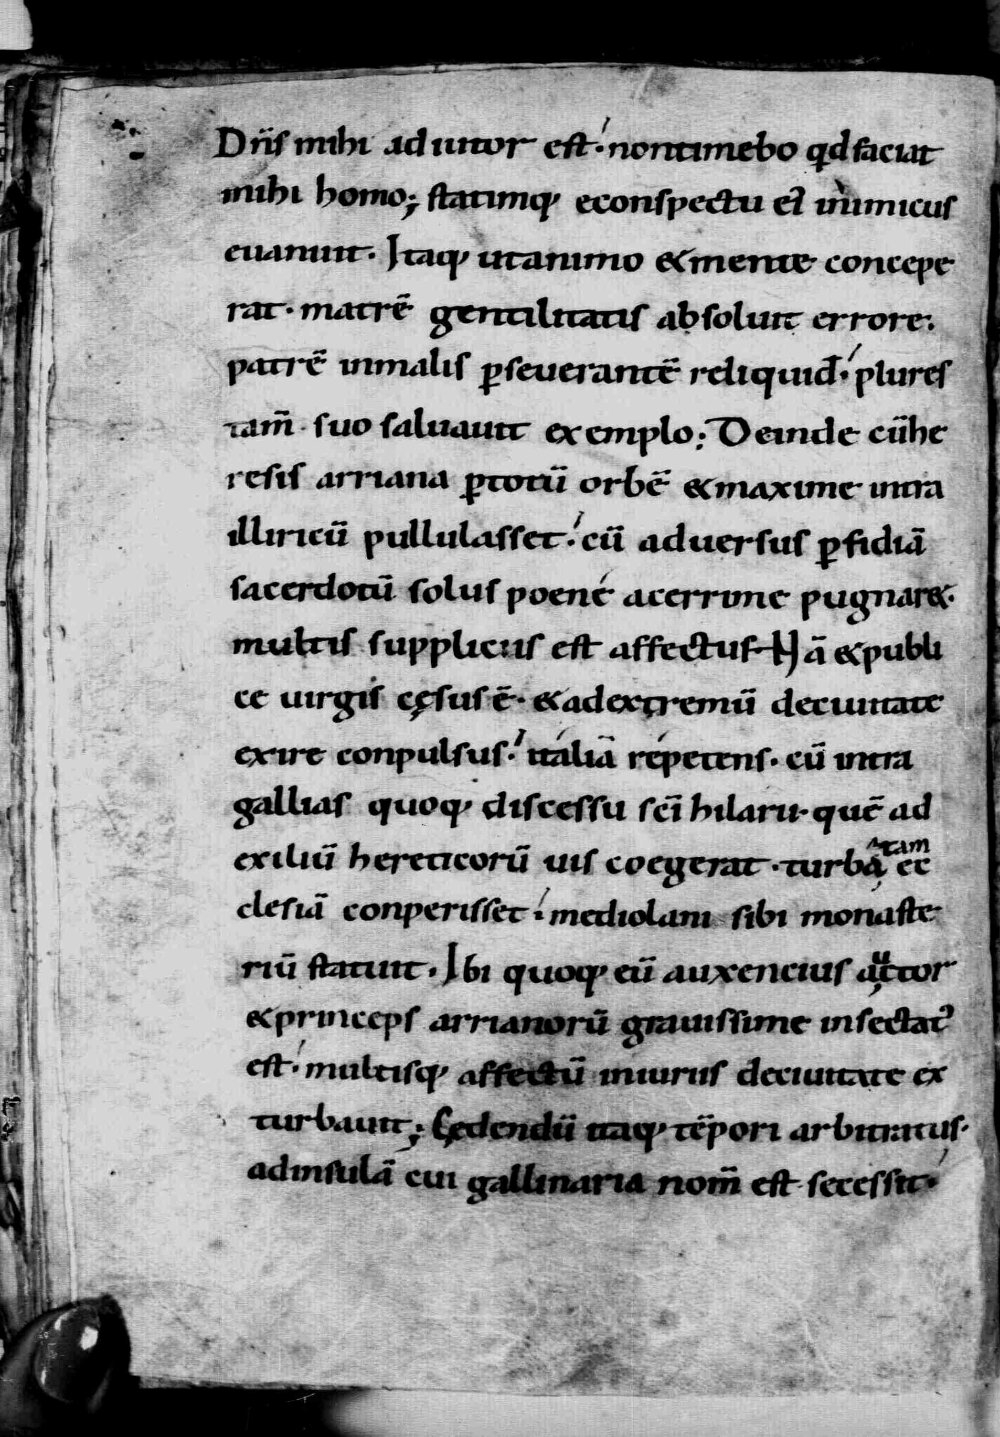 Dn̄s mihi adiutor est· non timebo qd faciat
mihi homo; statimq; e conspectu ei᾽ inimicus
euanuit. Itaq; ut animo & mente concepe
rat· matrē gentilitatis absoluit errore.
patrē in malis ꝑseuerantē reliquid· plures
tam̄ suo saluauit exemplo; Deinde cū he
resis arriana ꝑ totū orbē & maxime intra
illiricū pullulasset· cū aduersus ꝑfidiā
sacerdotū solus poene acerrime pugnar&·
multis suppliciis est affectus Nā & publi
ce uirgis cęsus ē· & ad extremū de ciuitate
exire conpulsus· italiā repetens· cū intra
gallias quoq; discessu sc̄i hilarii· quē ad
exiliū hereticorū uis coegerat· turbatam ec
clesiā conperisset· mediolani sibi monaste
riū statuit. Ibi quoq; eū auxencius auctor
& princeps arrianorū grauissime insectat᾽
est· multisq; affectū iniuriis de ciuitate ex
turbauit; Cędendū itaq; tēpori arbitratus·
ad insulā cui gallinaria nom̄ est secessit·